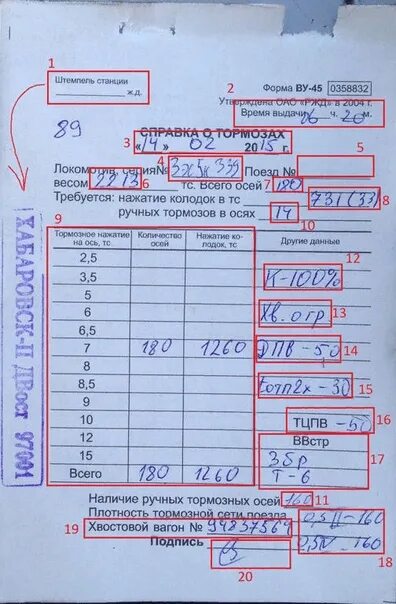 1
Штемпель станции
ж.д.
Форма ВУ-45 0358832
2
Утверждена ОАО «РЖД» в 2004 г.
Время выдачи 06 ч. 20 м.
89
СПРАВКА О ТОРМОЗАХ
3 «14» 02 2015 г.
4 5
Локомотив, серия № 3эс5к 339 Поезд №
весом 2213 6 тс. Всего осей 7 180
Требуется: нажатие колодок в тс 731 (33) 8
ручных тормозов в осях 14
10
9
Тормозное нажатие на ось, тс
Количество осей
Нажатие колодок, тс
Другие данные
2,5
12
3,5 К-100%
5
13
6 Хв. огр.
6,5
7 180 1260 ДПВ -5,0 14
8
8,5 15
9
10 ТЦПВ -50 16
12 ВВстр
15 Збр 17
Всего 180 1260 Т-6
Наличие ручных тормозных осей 160 11
Плотность тормозной сети поезда 0,5 II -160
19 Хвостовой вагон № 94837569
0,5 IV -160
Подпись
18
20
ХАБАРОВСК-II ДВост 97001